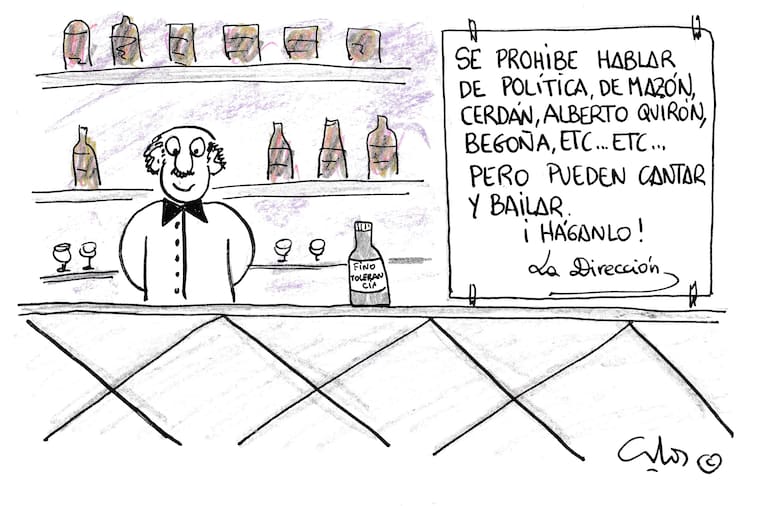 SE PROHIBE HABLAR
DE POLÍTICA, DE MAZÓN,
CERDÁN, ALBERTO QUIRÓN,
BEGOÑA, ETC... ETC...
PERO PUEDEN CANTAR
Y BAILAR.
¡HÁGANLO!
La Dirección
FINO
TOLERAN
CIA
©